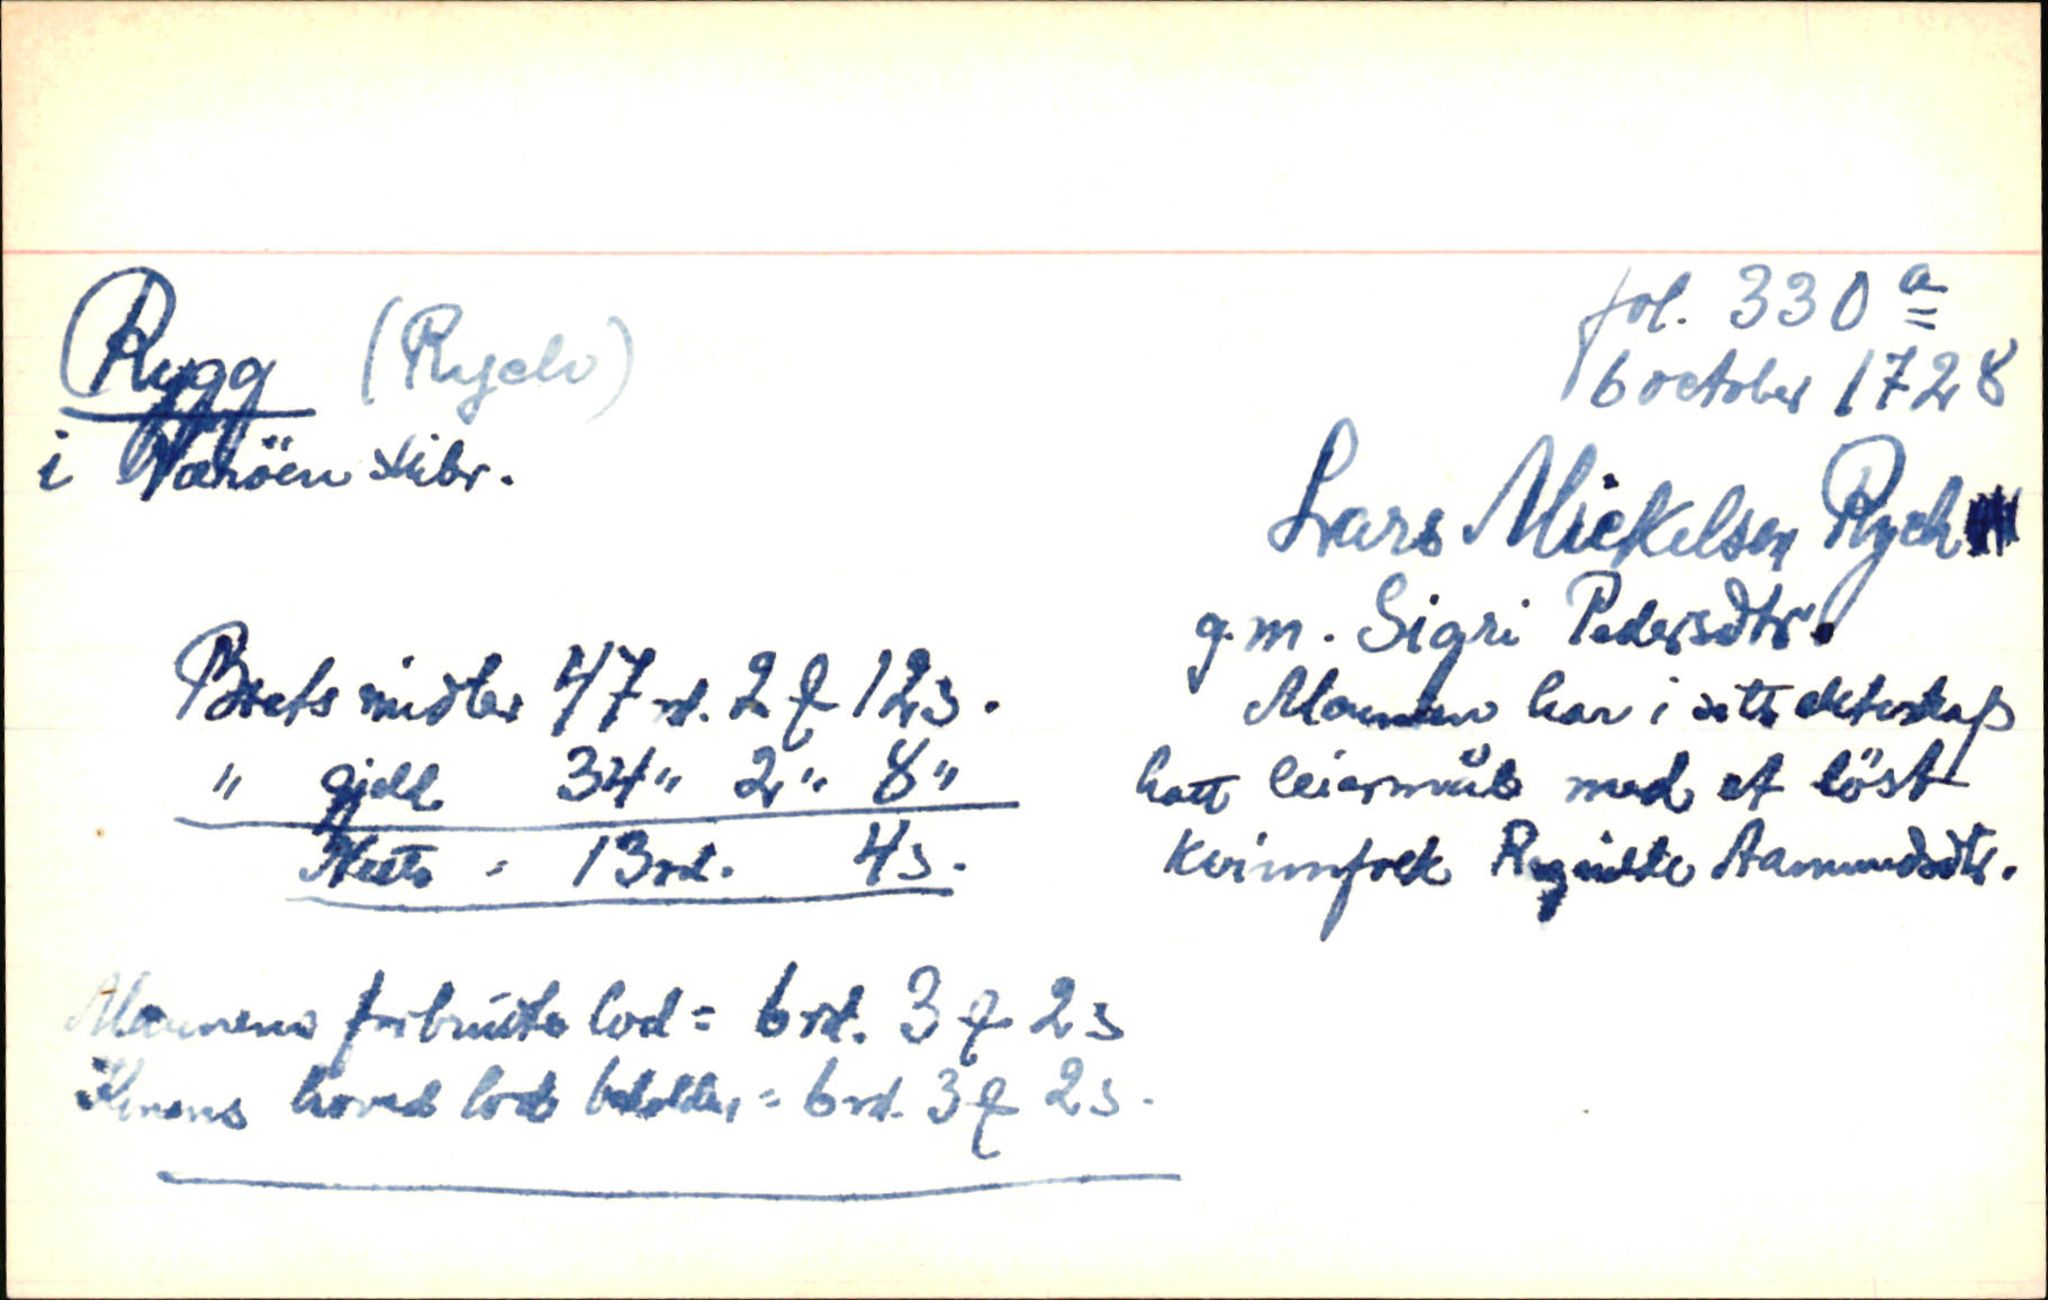 Rygg (Rych)
i Væröen skibr.
fol. 330 a
6 october 1728
Lars Mickelsen Rych
g.m. Sigri Pedersdtr.
Mannen har i sitt ekteskap
hatt leiermål med et löst
kvinnfolk Ragnilde Aamundsdtr.
Boets midler 47 rd. 2 q 12 s.
" gjeld 34 " 2 " 8 "
Netto = 13 rd. 4 s.
Mannens forbrutte lod = 6 rd. 3 q 2 s
Konens hoved lod beholder = 6 rd. 3 q 2 s.